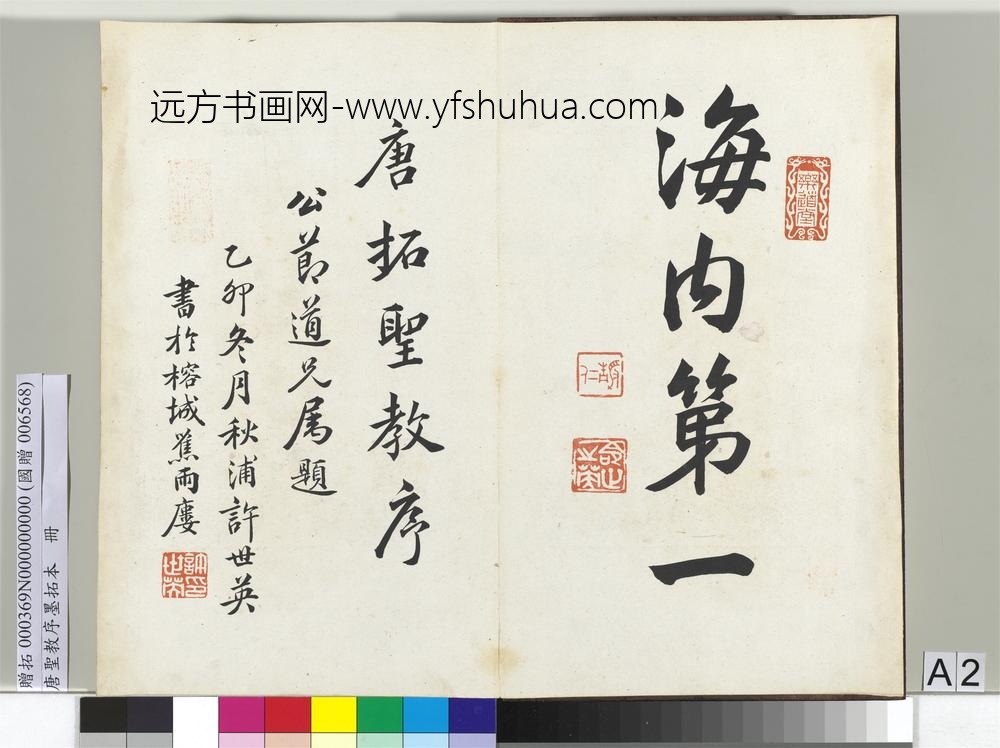 远方书画网-www.yfshuhua.com
海内第一
唐拓聖教序
公節道兄属題
乙卯冬月秋浦許世英
書於榕城蕉雨廔
樂道堂
許世英印
贈拓 000369N000000000 (國贈 006568)
唐聖教序墨拓本 冊
A 2